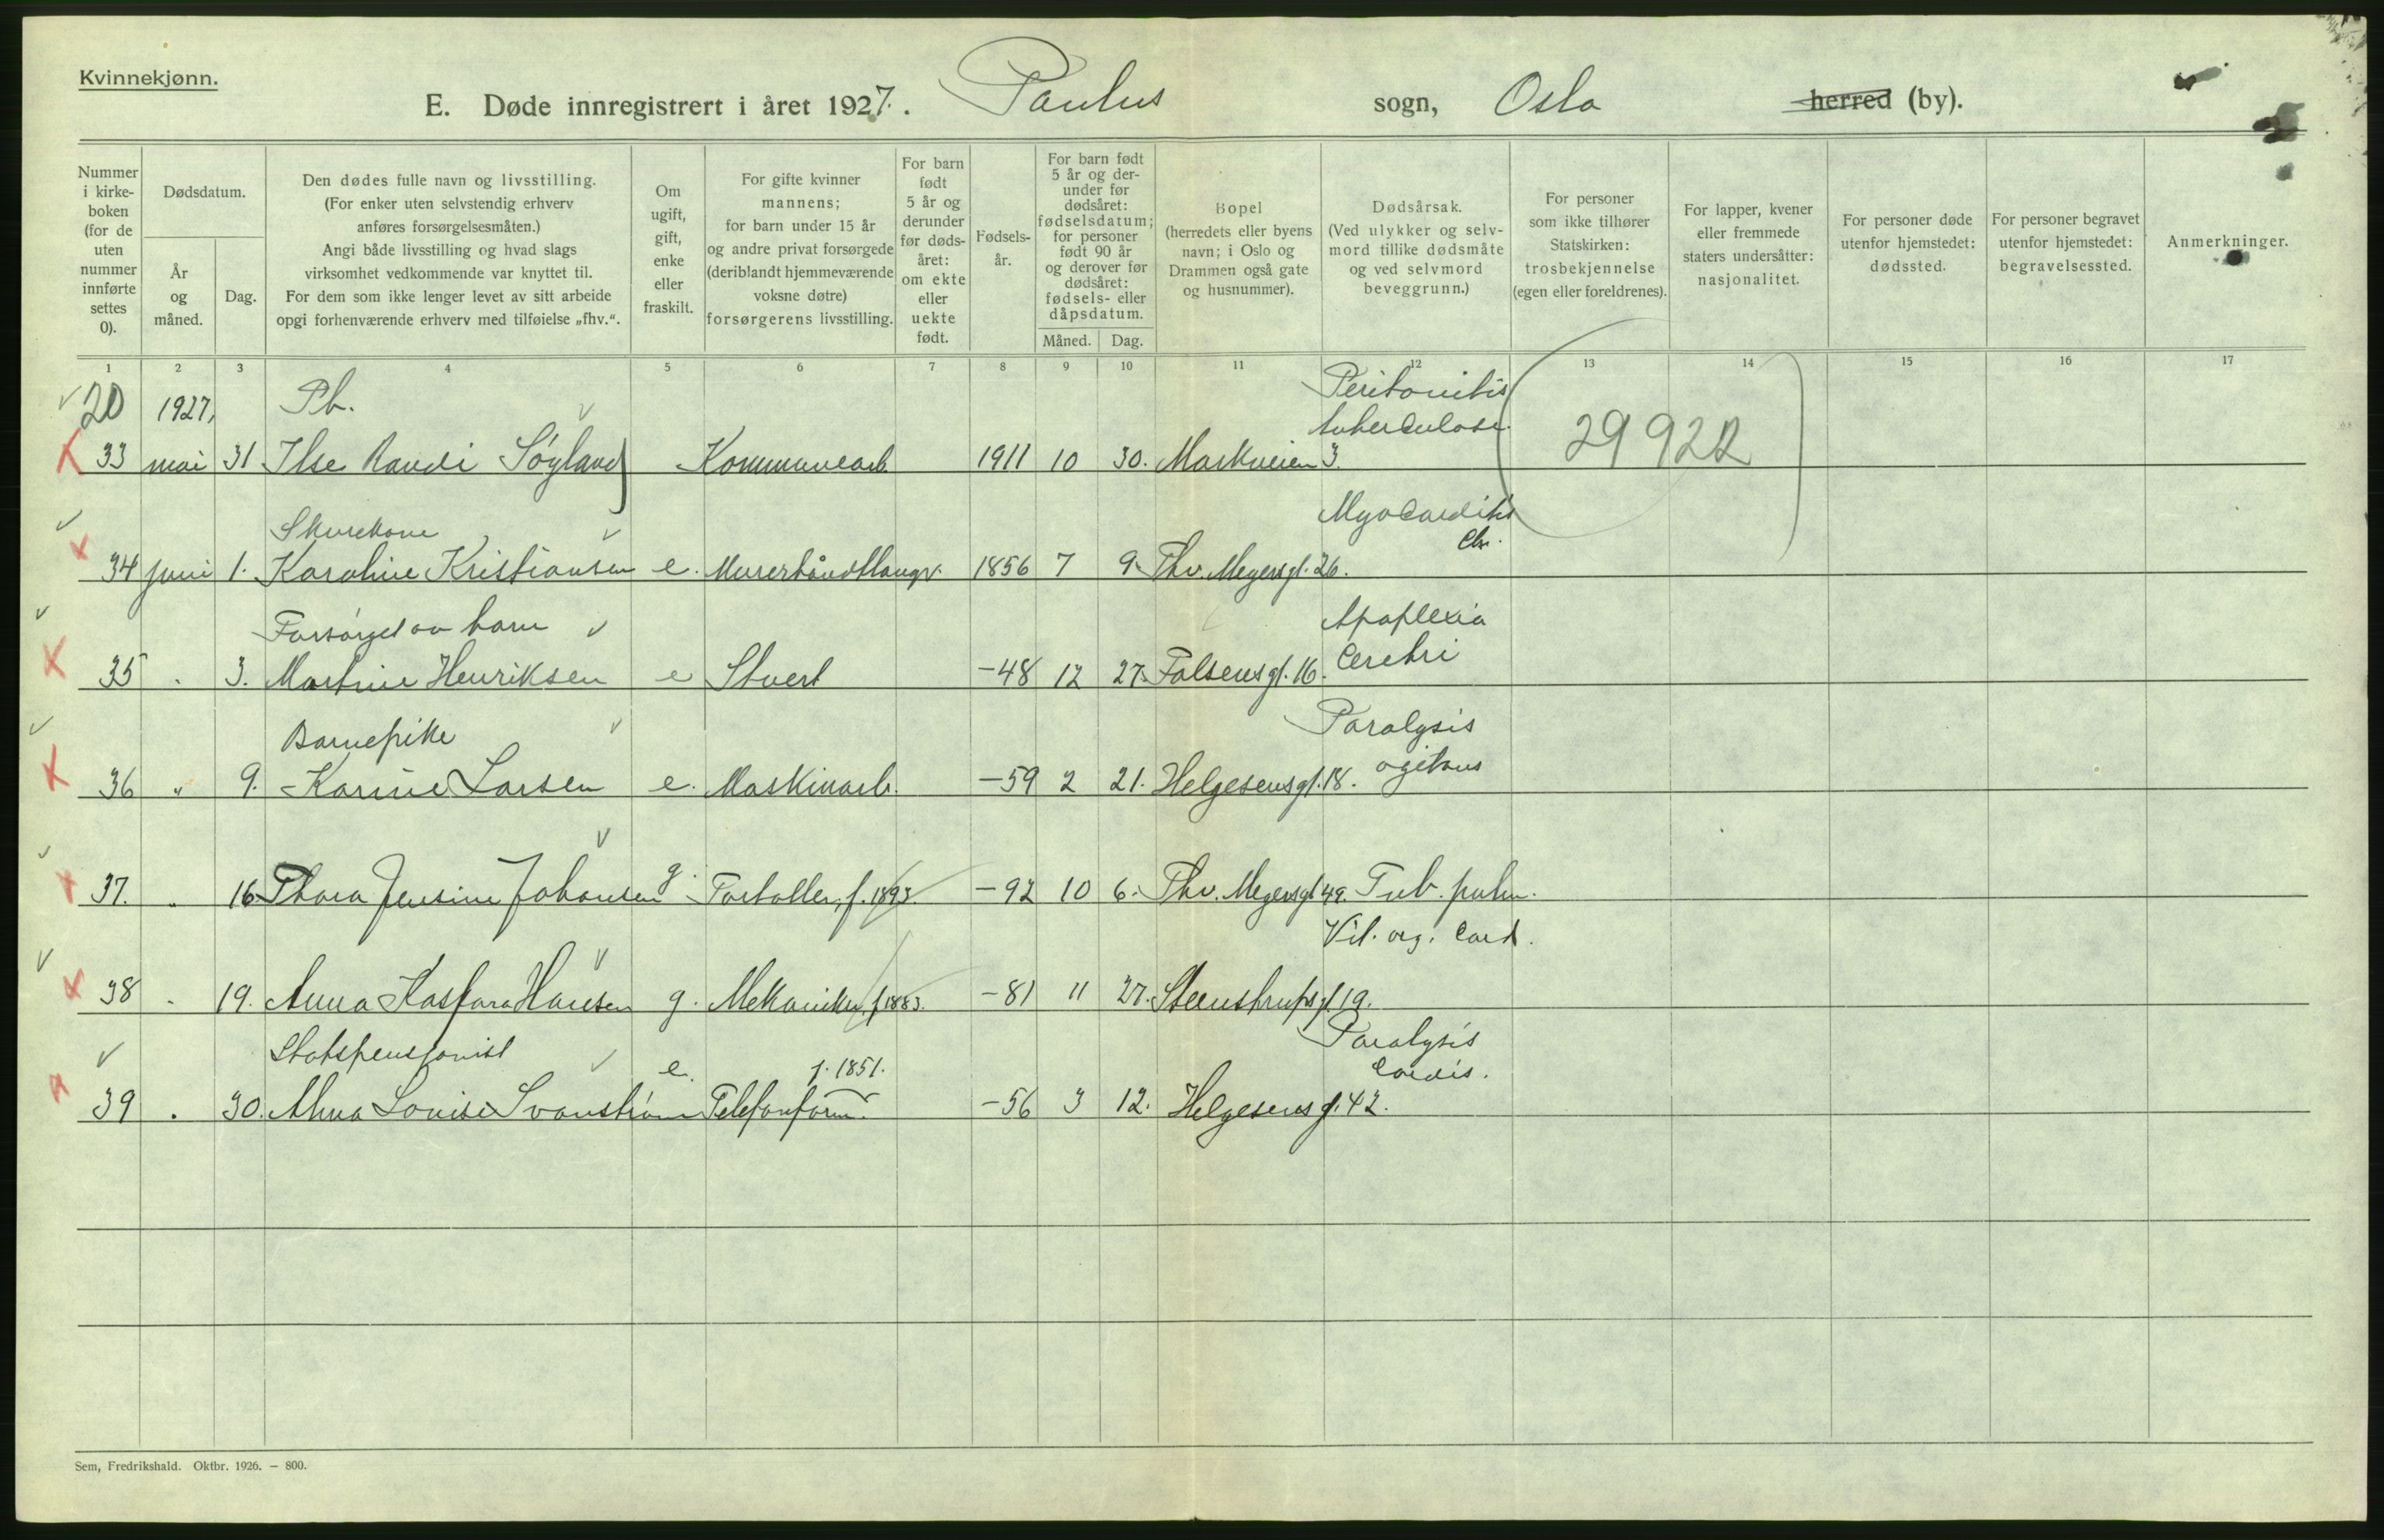 Kvinnekjønn.
E. Døde innregistrert i året 1927. Paulus sogn, Oslo herred (by).
Nummer i kirkeboken (for de uten nummer innførte settes 0).
Dødsdatum.
År og måned.
Dag.
Den dødes fulle navn og livsstilling.
(For enker uten selvstendig erhverv anføres forsørgelsesmåten.)
Angi både livsstilling og hvad slags virksomhet vedkommende var knyttet til.
For dem som ikke lenger levet av sitt arbeide opgi forhenværende erhverv med tilføielse „fhv.“.
Om ugift, gift, enke eller fraskilt.
For gifte kvinner mannens; for barn under 15 år og andre privat forsørgede (deriblandt hjemmeværende voksne døtre) forsørgerens livsstilling.
For barn født 5 år og derunder før dødsåret: om ekte eller uekte født.
Fødselsår.
For barn født 5 år og derunder før dødsåret: fødselsdatum; for personer født 90 år og derover før dødsåret: fødsels- eller dåpsdatum.
Måned. Dag.
Bopel (herredets eller byens navn; i Oslo og Drammen også gate og husnummer).
Dødsårsak. (Ved ulykker og selvmord tillike dødsmåte og ved selvmord beveggrunn.)
For personer som ikke tilhører Statskirken: trosbekjennelse (egen eller foreldrenes).
For lapper, kvener eller fremmede staters undersåtter: nasjonalitet.
For personer døde utenfor hjemstedet: dødssted.
For personer begravet utenfor hjemstedet: begravelsessted.
Anmerkninger.
1 2 3 4 5 6 7 8 9 10 11 12 13 14 15 16 17
20 1927, Pb. Peritonitis
tuberculosa. 29922
33 mai 31 Ilse Randi Søyland Kommunearb. 1911 10 30. Markveien 3.
Skurekone Myocarditis
chr.
34 juni 1. Karoline Kristiansen e. Murerhåndtlangr. 1856 7 9. Thv. Meyersgt. 26.
Forsørget av barn Apoplexia
35 . 3. Martine Henriksen e Stuert -48 12 27. Falsensgt. 16. Cerebri
Barnepike Paralysis
36 " 9. Karine Larsen e. Maskinarb. -59 2 21. Helgesensgt. 18. agitans
37. " 16 Thora Jensine Johansen g. Fortoller, f. 1893. -92 10 6. Thv. Meyersgt 49. Tub. pulm.
Vit. org. Cord.
38 . 19. Anna Kaspara Hansen g. Mekaniker, f 1883. -81 11 27. Steenstrupsgt. 19.
Statspensjonist e. f. 1851. Paralysis
Cordis.
39 . 30. Alma Louise Svanstrøm Telefonform. -56 3 12. Helgesensgt. 42.
Sem, Fredrikshald. Oktbr. 1926. — 800.